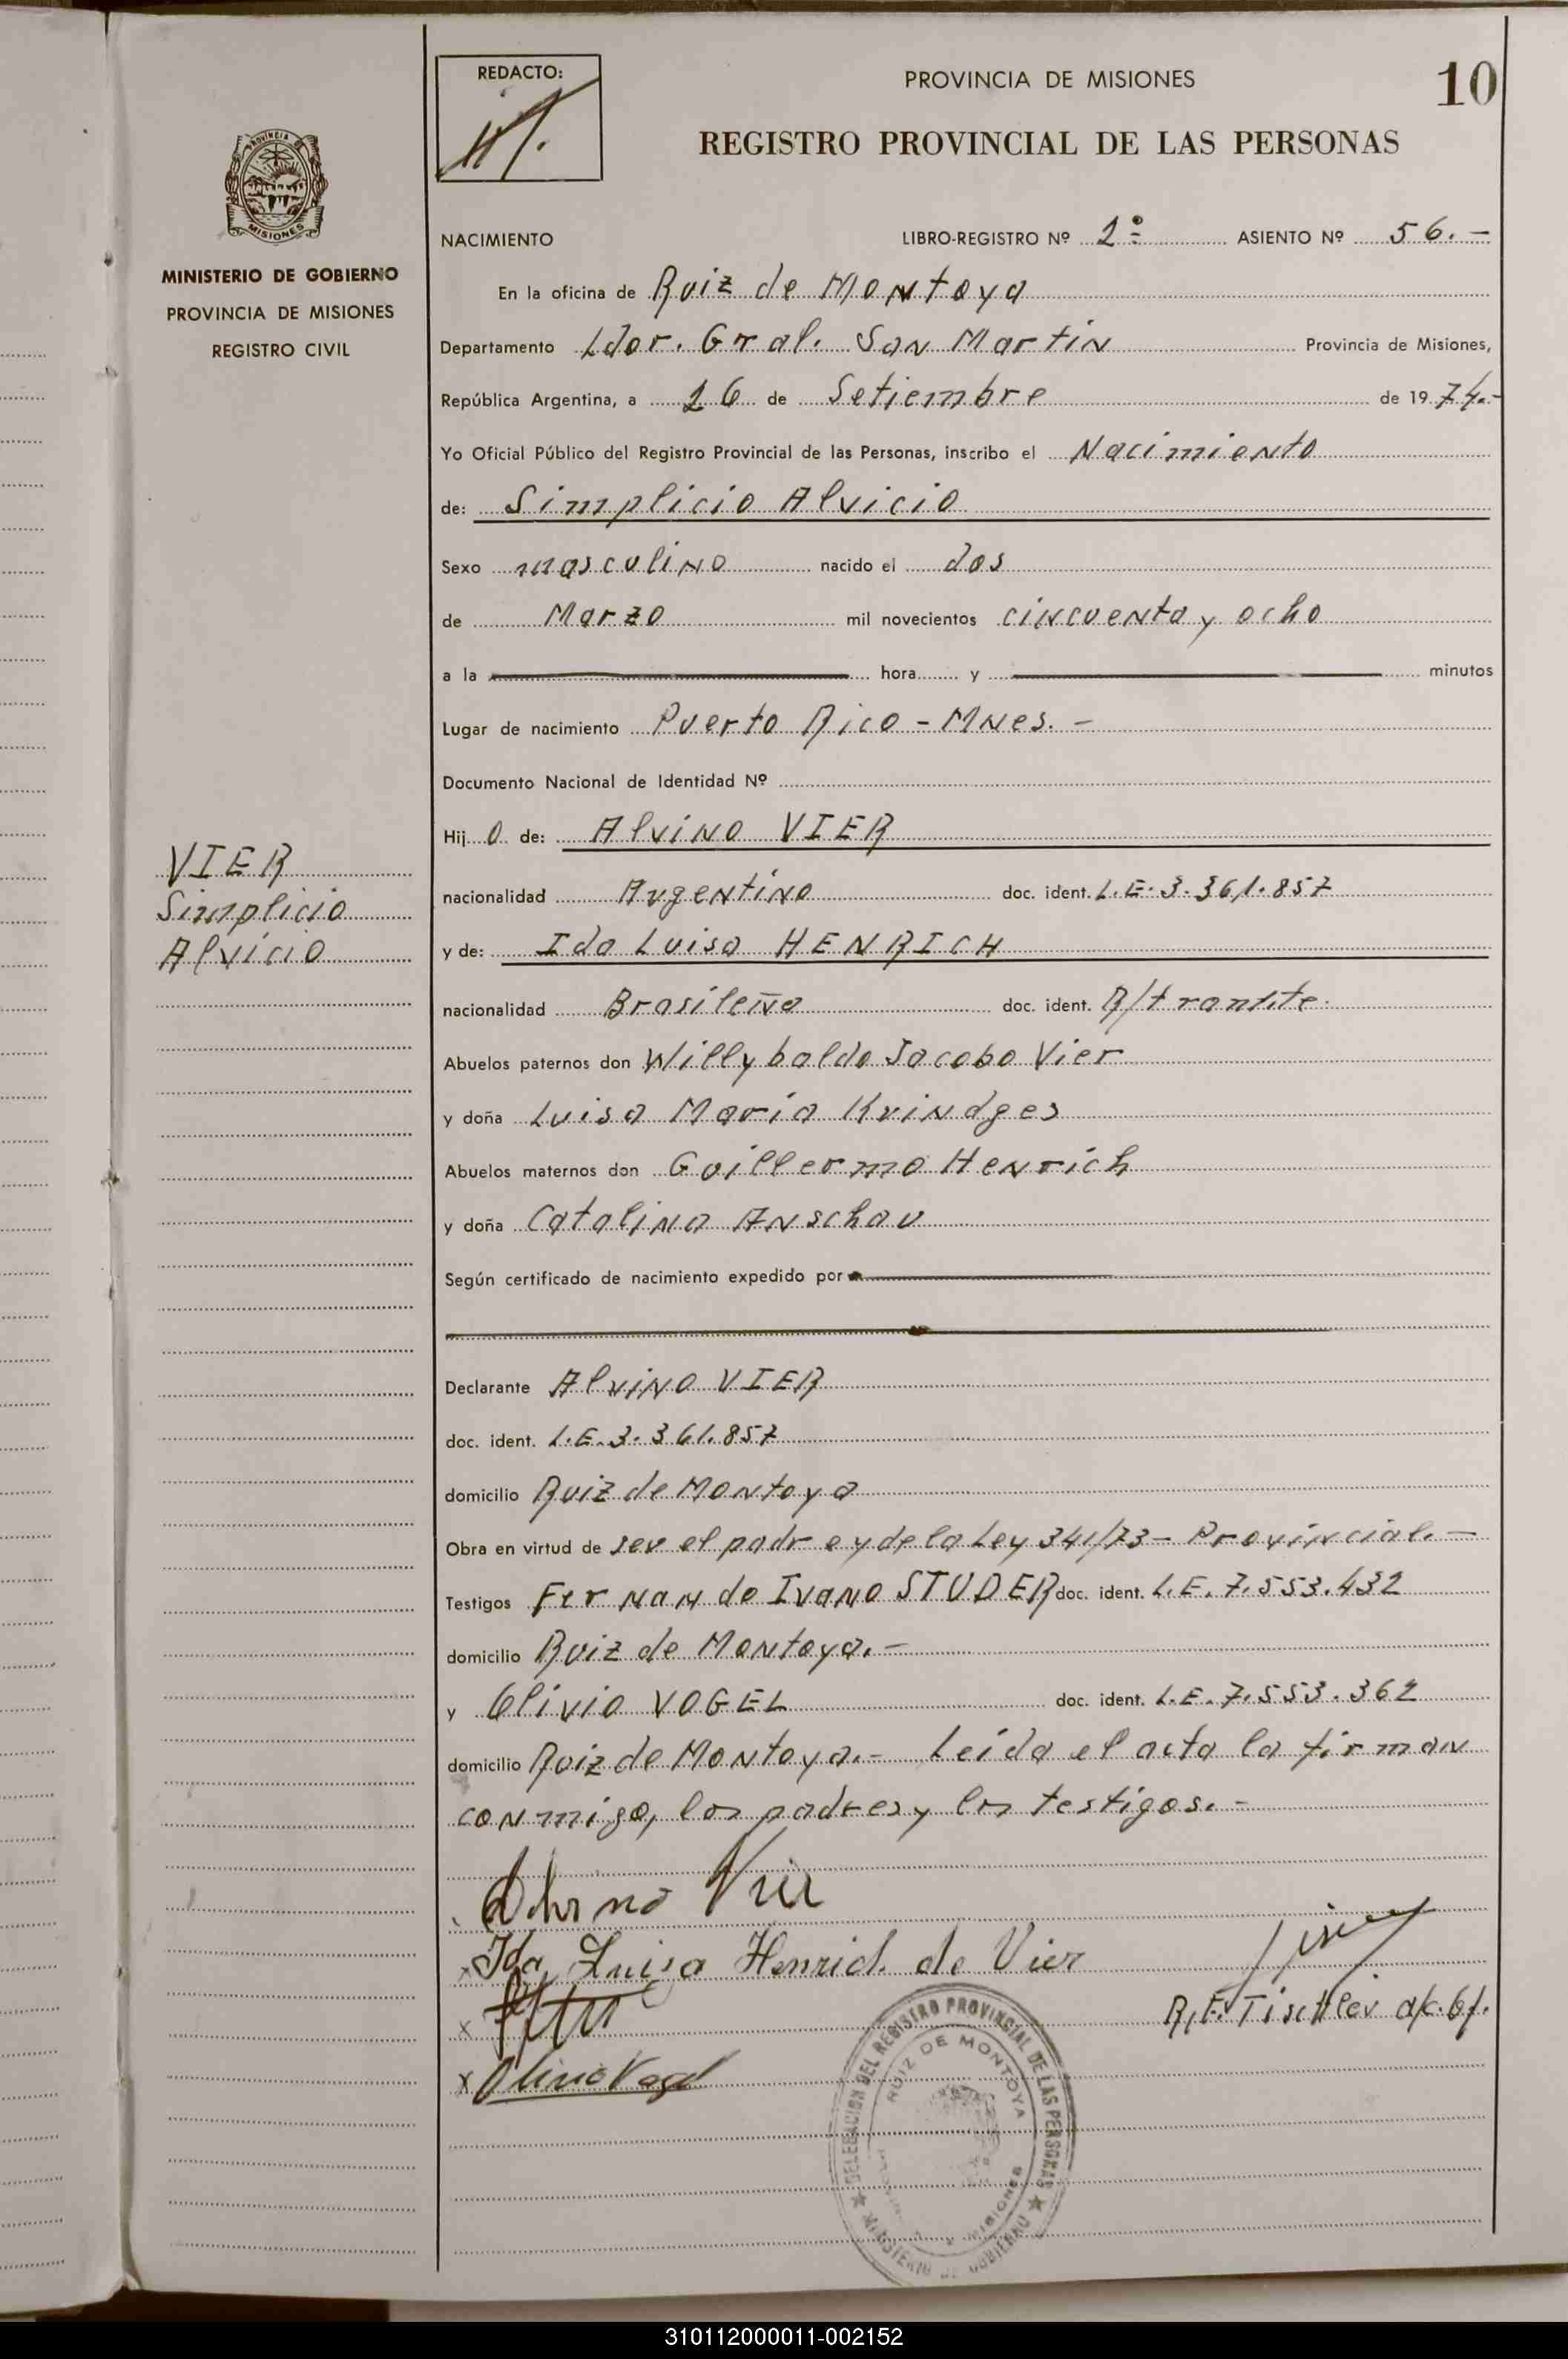 REDACTO:
PROVINCIA DE MISIONES
10
REGISTRO PROVINCIAL DE LAS PERSONAS
PROVINCIA
MISIONES
MINISTERIO DE GOBIERNO
PROVINCIA DE MISIONES
REGISTRO CIVIL
NACIMIENTO LIBRO-REGISTRO Nº 2º ASIENTO Nº 56.-
En la oficina de Ruiz de Montoya
Departamento Ldor. Gral. San Martín Provincia de Misiones,
República Argentina, a 26 de Setiembre de 1974.-
Yo Oficial Público del Registro Provincial de las Personas, inscribo el Nacimiento
de: Simplicio Alvicio
Sexo masculino nacido el dos
de Marzo mil novecientos cincuenta y ocho
a la hora y minutos
Lugar de nacimiento Puerto Rico - Mnes. -
Documento Nacional de Identidad Nº
Hijo de: Alvino VIER
VIER
Simplicio
Alvicio
nacionalidad Argentino doc. ident. L.E. 3.361.857
y de: Ida Luisa HENRICH
nacionalidad Brasileña doc. ident. R/tramite.
Abuelos paternos don Willybaldo Jacobo Vier
y doña Luisa María Krindges
Abuelos maternos don Guillermo Henrich
y doña Catalina Anschau
Según certificado de nacimiento expedido por
Declarante Alvino VIER
doc. ident. L.E. 3.361.857
domicilio Ruiz de Montoya
Obra en virtud de ser el padre y de la Ley 341/73 - Provincial. -
Testigos Fernando Ivano STUDER doc. ident. L.E. 7.553.432
domicilio Ruiz de Montoya. -
y Olivio VOGEL doc. ident. L.E. 7.553.362
domicilio Ruiz de Montoya. - Leída el acta la firman
conmigo, los padres y los testigos. -
Alvino Vier
x Ida Luisa Henrich de Vier
R.E. Tischler a/c. 6/.
x
x Olivio Vogel
DELEGACION DEL REGISTRO PROVINCIAL DE LAS PERSONAS
RUIZ DE MONTOYA
MISIONES
MINISTERIO DE GOBIERNO
310112000011-002152